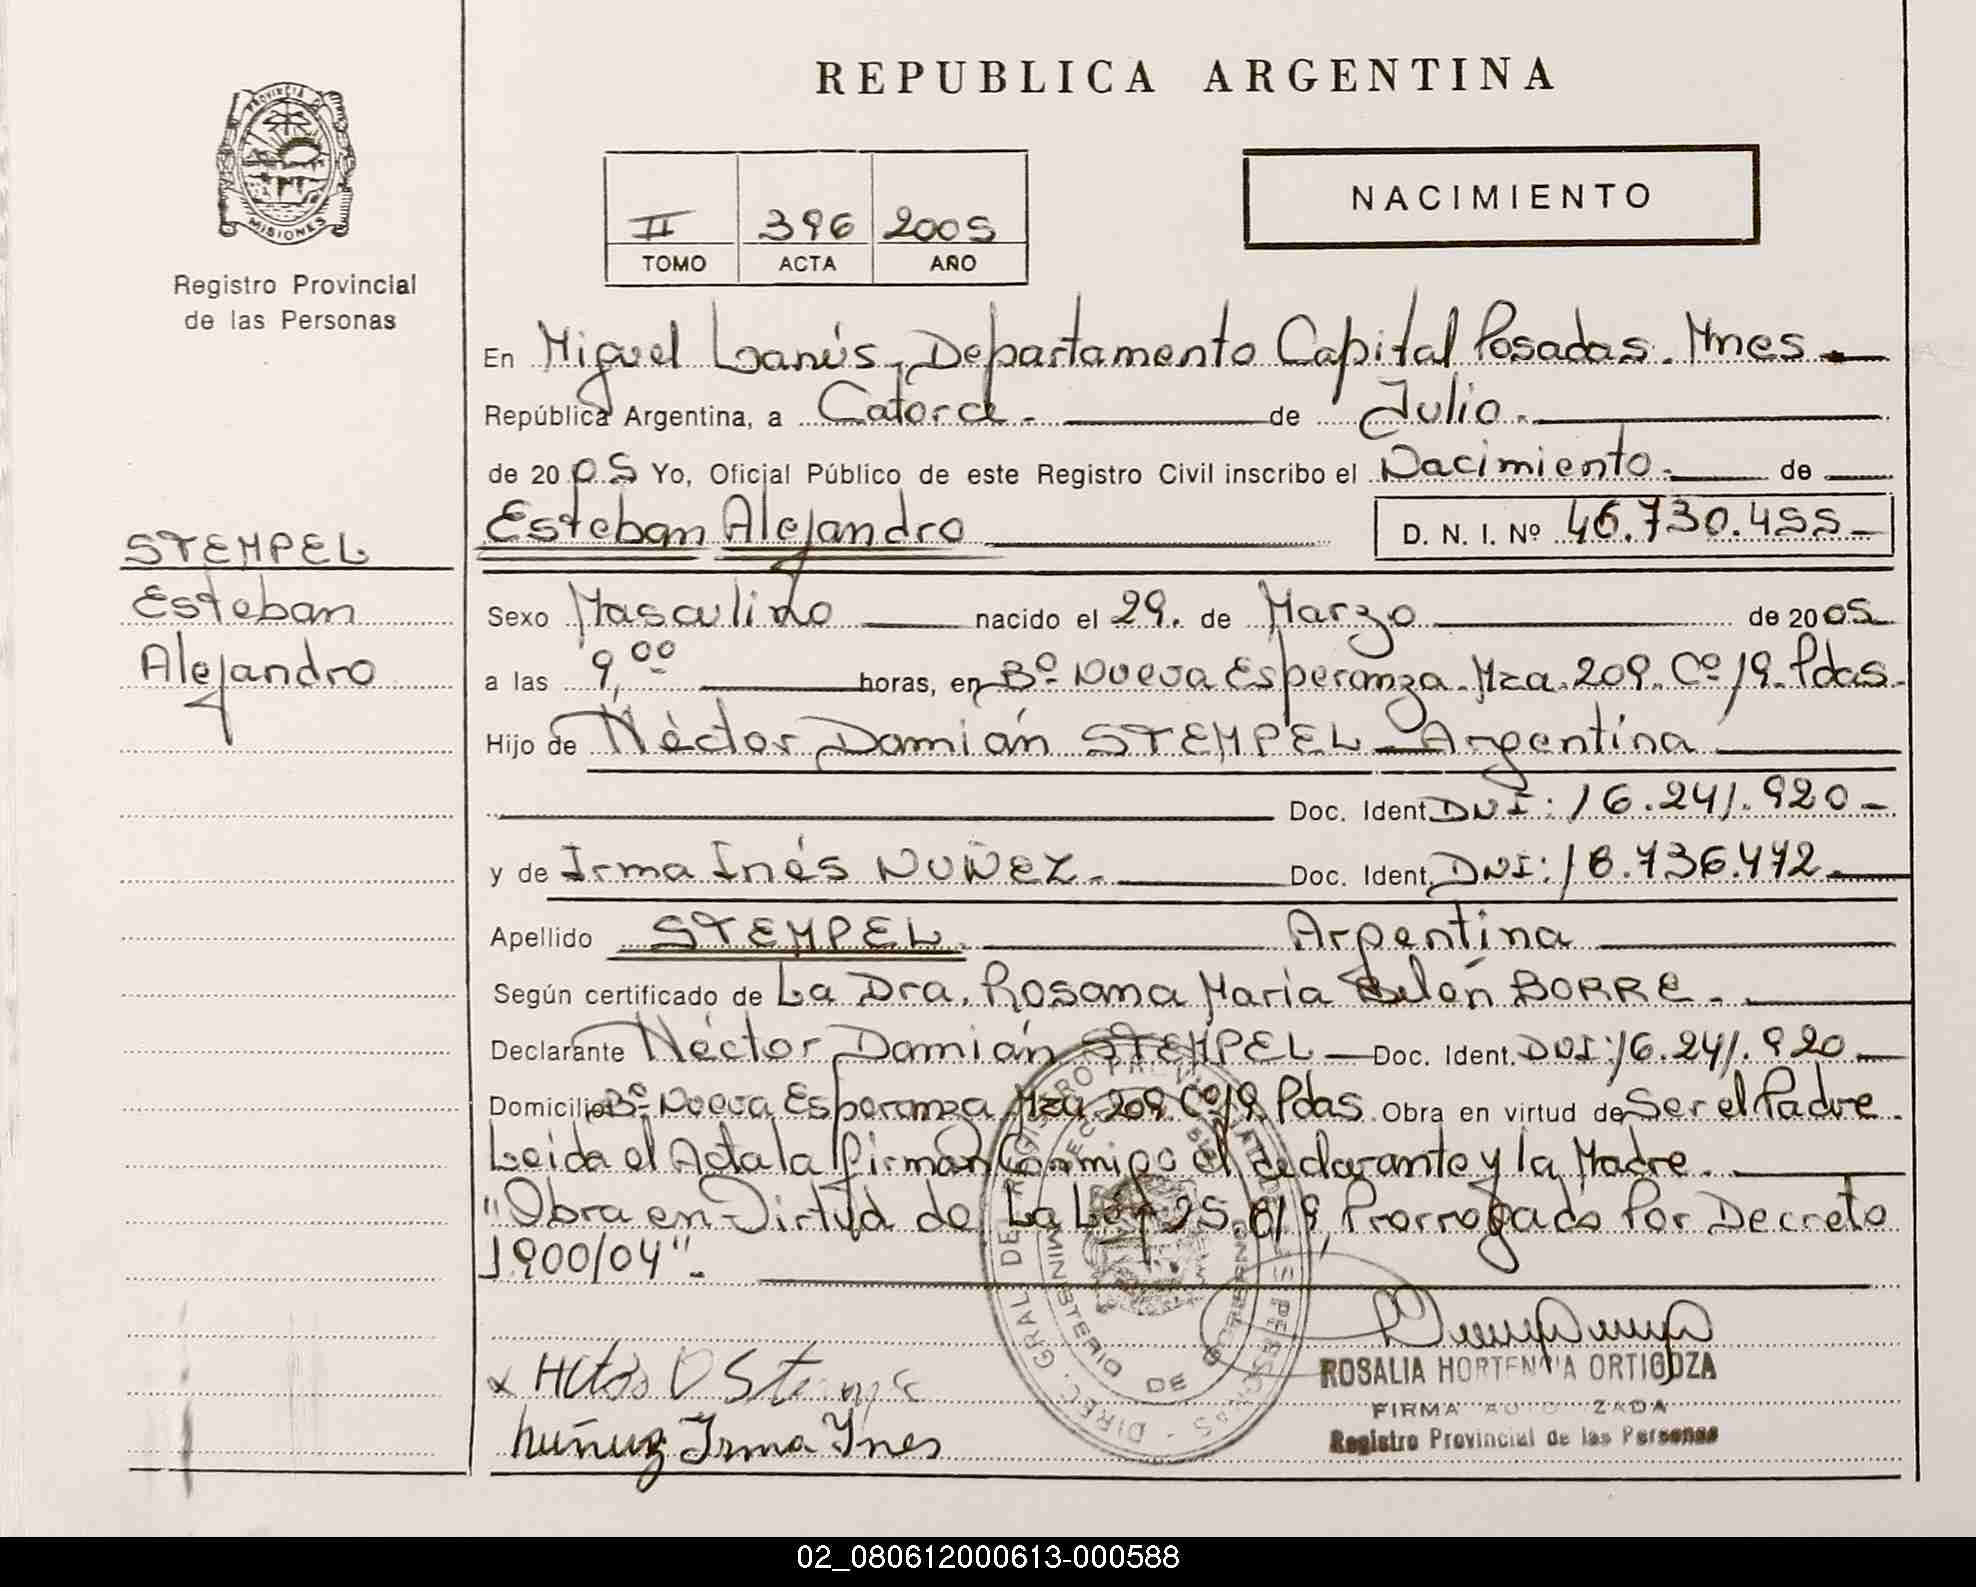 REPUBLICA ARGENTINA
PROVINCIA DE
MISIONES
Registro Provincial
de las Personas
II 396 2005
TOMO ACTA AÑO
NACIMIENTO
En Miguel Lanús, Departamento Capital Posadas. Mnes.
República Argentina, a Catorce. de Julio.
de 2005 Yo, Oficial Público de este Registro Civil inscribo el Nacimiento. de
Esteban Alejandro D. N. I. Nº 46.730.455
STEMPEL
Esteban
Alejandro
Sexo Masculino nacido el 29. de Marzo de 2005
a las 9,00 horas, en Bº Nueva Esperanza. Mza. 209. Cº 19. Pdas.
Hijo de Néctor Damián STEMPEL Argentina
Doc. Ident. DNI: 16.241.920
y de Irma Inés NUÑEZ. Doc. Ident. DNI: 18.736.472
Apellido STEMPEL. Argentina
Según certificado de La Dra. Rosana María Belén BORRE.
Declarante Néctor Damián STEMPEL Doc. Ident. DNI: 16.241.920
Domicilio Bº Nueva Esperanza Mza 209 Cº 19 Pdas. Obra en virtud de Ser el Padre.
Leida el Acta la firman Conmigo el declarante y la Madre.
"Obra en Virtud de La Ley 25.819, Prorrogado Por Decreto
1900/04".
Nuñez Irma Ynes
ROSALIA HORTENCIA ORTIGOZA
FIRMA AUTORIZADA
Registro Provincial de las Personas
02_080612000613-000588